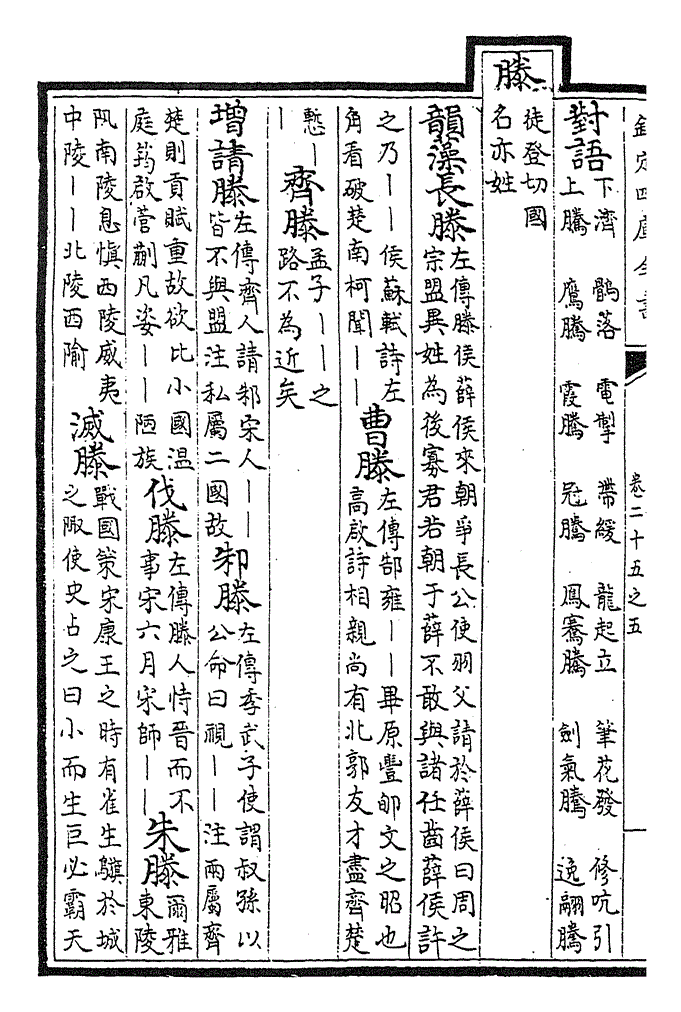 欽定四庫全書 卷二十五之五
對語 下濟 鶻落 電掣 帶緩 龍起立 筆花發 修吭引
上騰 鷹騰 霞騰 冠騰 鳳騫騰 劍氣騰 逸翮騰
滕 徒登切國
名亦姓
韻藻 長滕 左傳滕侯薛侯來朝爭長公使羽父請於薛侯曰周之
宗盟異姓為後寡君若朝于薛不敢與諸任齒薛侯許
之乃——侯蘇軾詩左
角看破楚南柯聞——
曹滕 左傳郜雍——畢原豐郇文之昭也
高啟詩相親尚有北郭友才盡齊楚
慙—
—
齊滕 孟子——之
路不為近矣
增 請滕 左傳齊人請邾宋人——
皆不與盟注私屬二國故
邾滕 左傳季武子使謂叔孫以
公命曰視——注兩屬齊
楚則貢賦重故欲比小國温
庭筠啟菅蒯凡姿——陋族
伐滕 左傳滕人恃晉而不
事宋六月宋師——
朱滕 爾雅
東陵
阠南陵息慎西陵威夷
中陵——北陵西隃
滅滕 戰國策宋康王之時有雀生於城
之陬使史占之曰小而生巨必霸天